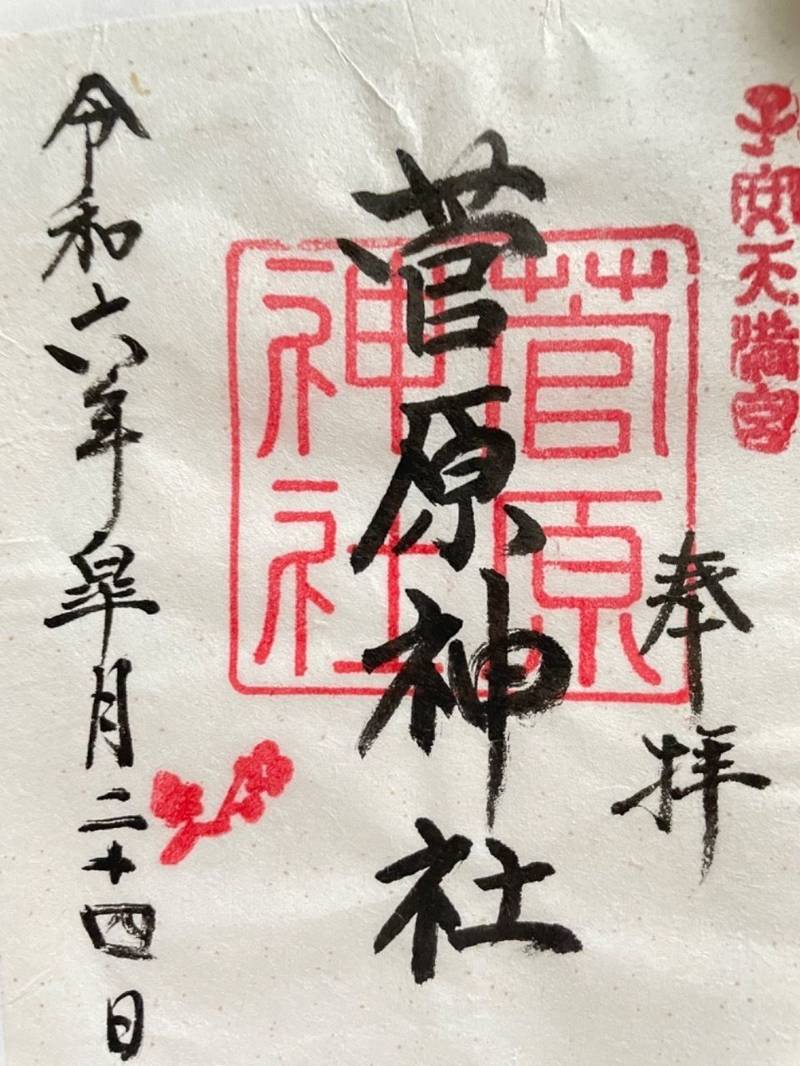 子安天満宮
奉拝
菅原神社
菅原
神社
令和六年皐月二十四日